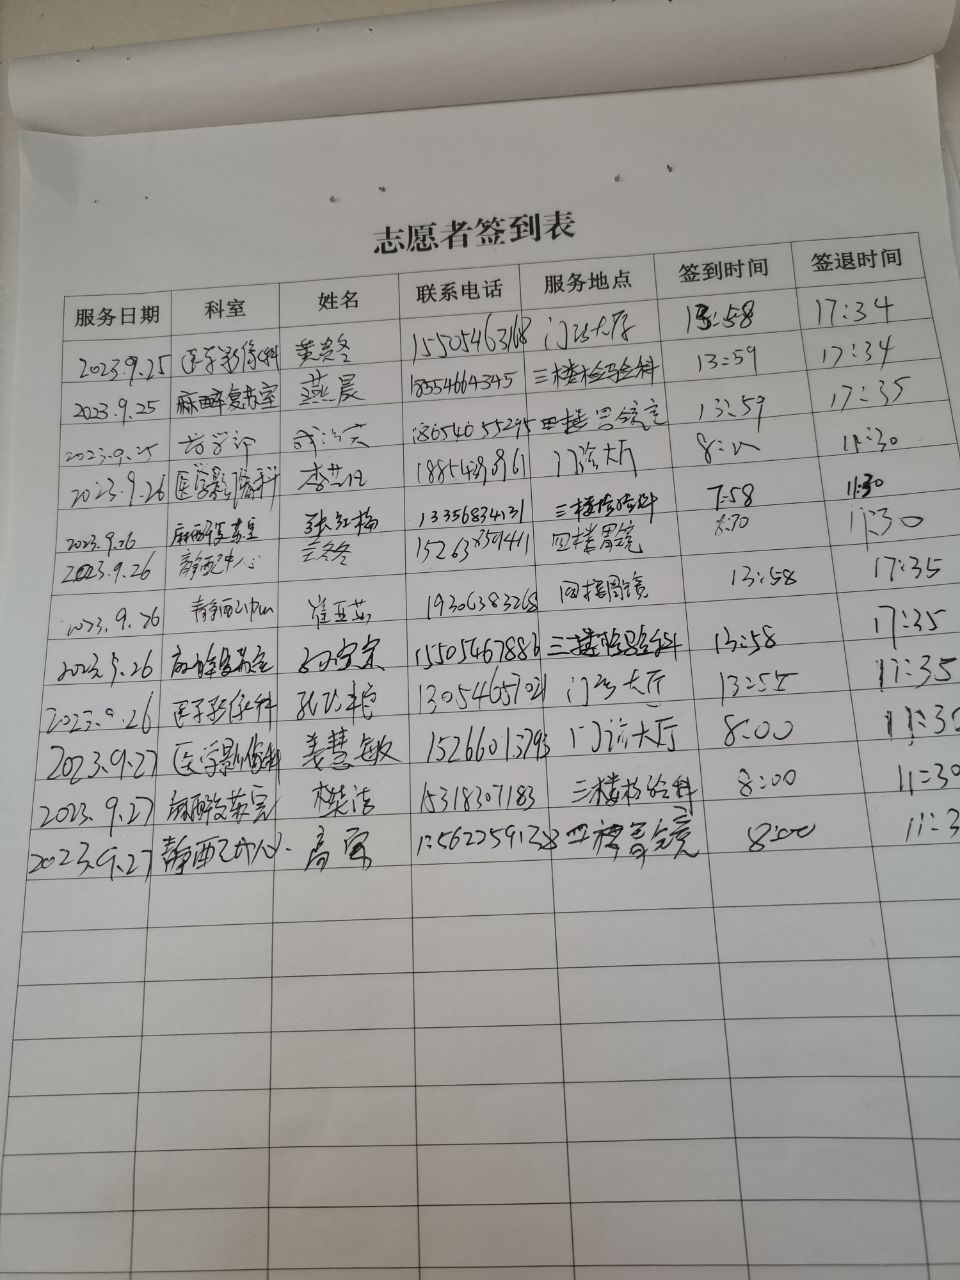 志愿者签到表
服务日期 科室 姓名 联系电话 服务地点 签到时间 签退时间
2023.9.25 医学影像科 黄冬 15505463168 门诊大厅 13:58 17:34
2023.9.25 麻醉复苏室 燕晨 18554664345 三楼检验科 13:59 17:34
2023.9.25 药学部 18654055295 四楼胃镜室 13:59 17:35
2023.9.26 医学影像科 李 门诊大厅 8: 11:30
2023.9.26 麻醉复苏室 张红梅 13356834131 三楼检验科 7:58 11:30
2023.9.26 静配中心 冬冬 四楼胃镜 11:30
2023.9.26 静配中心 崔亚茹 19306383268 四楼胃镜 13:58 17:35
2023.9.26 麻醉复苏室 15505467886 三楼检验科 13:58 17:35
2023.9.26 医学影像科 13054657021 门诊大厅 13:55 17:35
2023.9.27 医学影像科 姜慧敏 15266013793 门诊大厅 8:00
2023.9.27 麻醉复苏室 樊洁 15318307183 三楼检验科 8:00 11:30
2023.9.27 静配中心 高 15622591328 四楼胃镜 8:00 11:3